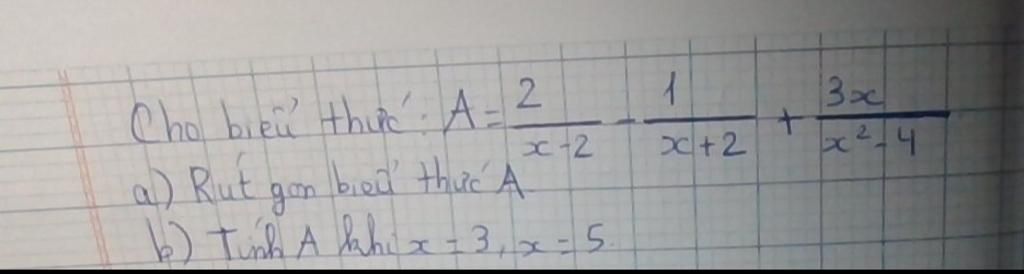 Cho biểu thức: A = 2/(x-2) - 1/(x+2) + 3x/(x²-4)
a) Rút gọn biểu thức A.
b) Tính A khi x = 3, x = 5.